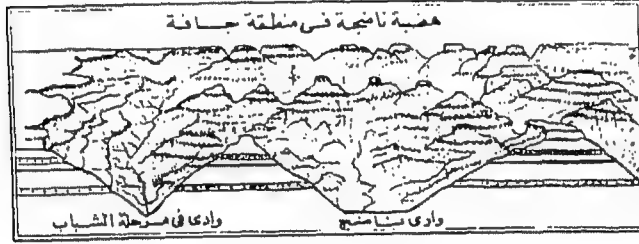 هضبة ناضجة في منطقة جافة
وادى في مرحلة الشباب
وادى ناضج